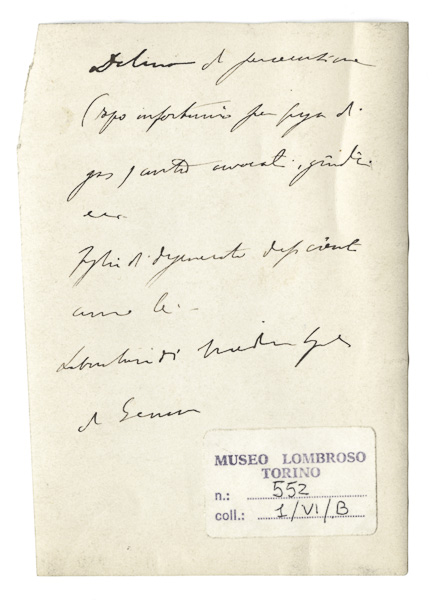 Delirio di persecuzione
(dopo infortunio per fuga di
gas) contro avvocati, giudici
ecc.
Figlio di degenerato deficiente
come lui.
Laboratorio di Medicina legale
di Genova
MUSEO LOMBROSO
TORINO
n.: 552
coll.: 1/VI/B